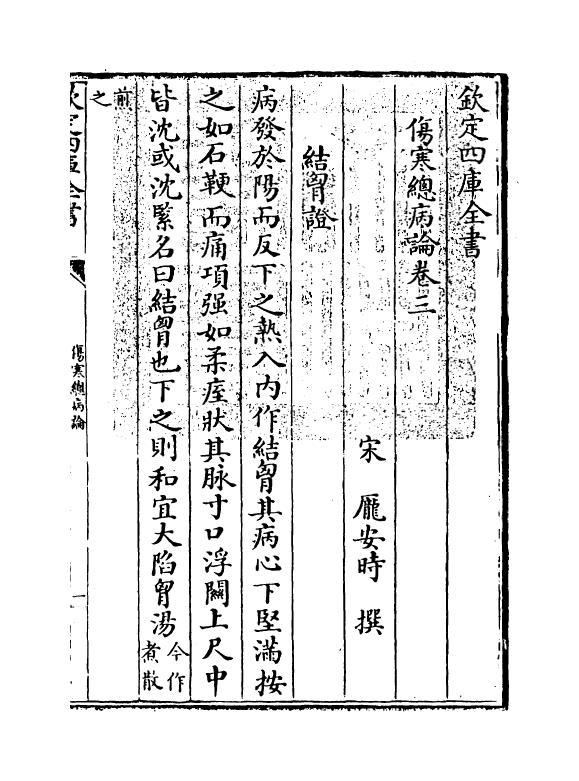 欽定四庫全書
傷寒總病論卷三
宋　龐安時　撰
結胷證
病發於陽而反下之熱入内作結胷其病心下堅滿按
之如石鞕而痛項强如柔痓狀其脉寸口浮關上尺中
皆沈或沈緊名曰結胷也下之則和宜大陷胷湯今作
煮散
前
之
欽定四庫全書
傷寒總病論
一